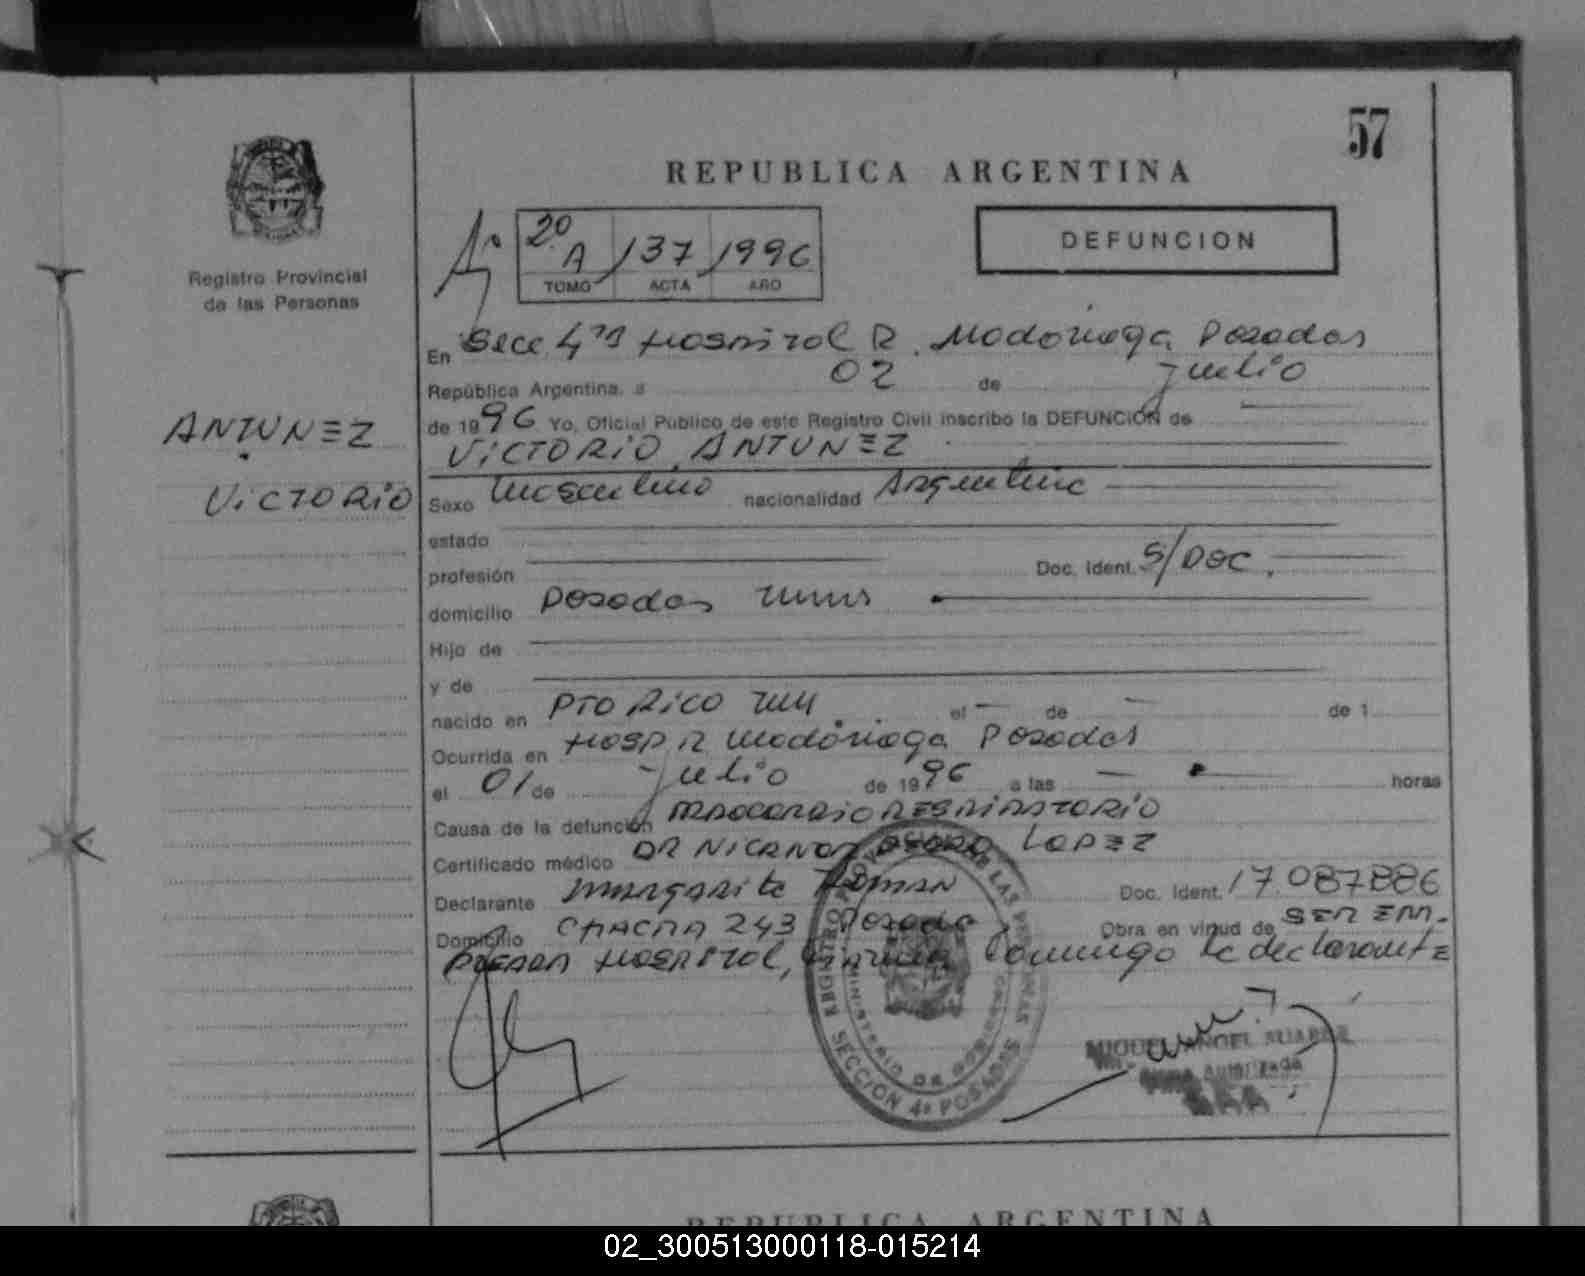 57
REPUBLICA ARGENTINA
Registro Provincial
de las Personas
2º A 137 1996
TOMO ACTA AÑO
DEFUNCION
En Secc 4ta Hospital R. Madariaga Posadas
República Argentina, a 02 de Julio
de 1996 Yo, Oficial Público de este Registro Civil inscribo la DEFUNCION de
ANTUNEZ
VICTORIO
VICTORIO ANTUNEZ
Sexo masculino nacionalidad Argentina
estado
profesión Doc. Ident. S/DOC.
domicilio Posadas Mnes
Hijo de
y de
nacido en PTO RICO Mnes el — de — de 1
Ocurrida en HOSP R Madariaga Posadas
el 01 de Julio de 1996 a las — horas
Causa de la defunción
Certificado médico DR NICANOR LOPEZ
Declarante Margarita Doc. Ident. 17.087.886
Domicilio CHACRA 243 Posadas Obra en virtud de SER EM-
HOSPITAL, Domingo la declarante
REGISTRO PROVINCIAL DE LAS PERSONAS
MINISTERIO DE GOBIERNO
SECCION 4ª POSADAS
MIGUEL ANGEL SUAREZ
Firma Autorizada
REPUBLICA ARGENTINA
02_300513000118-015214